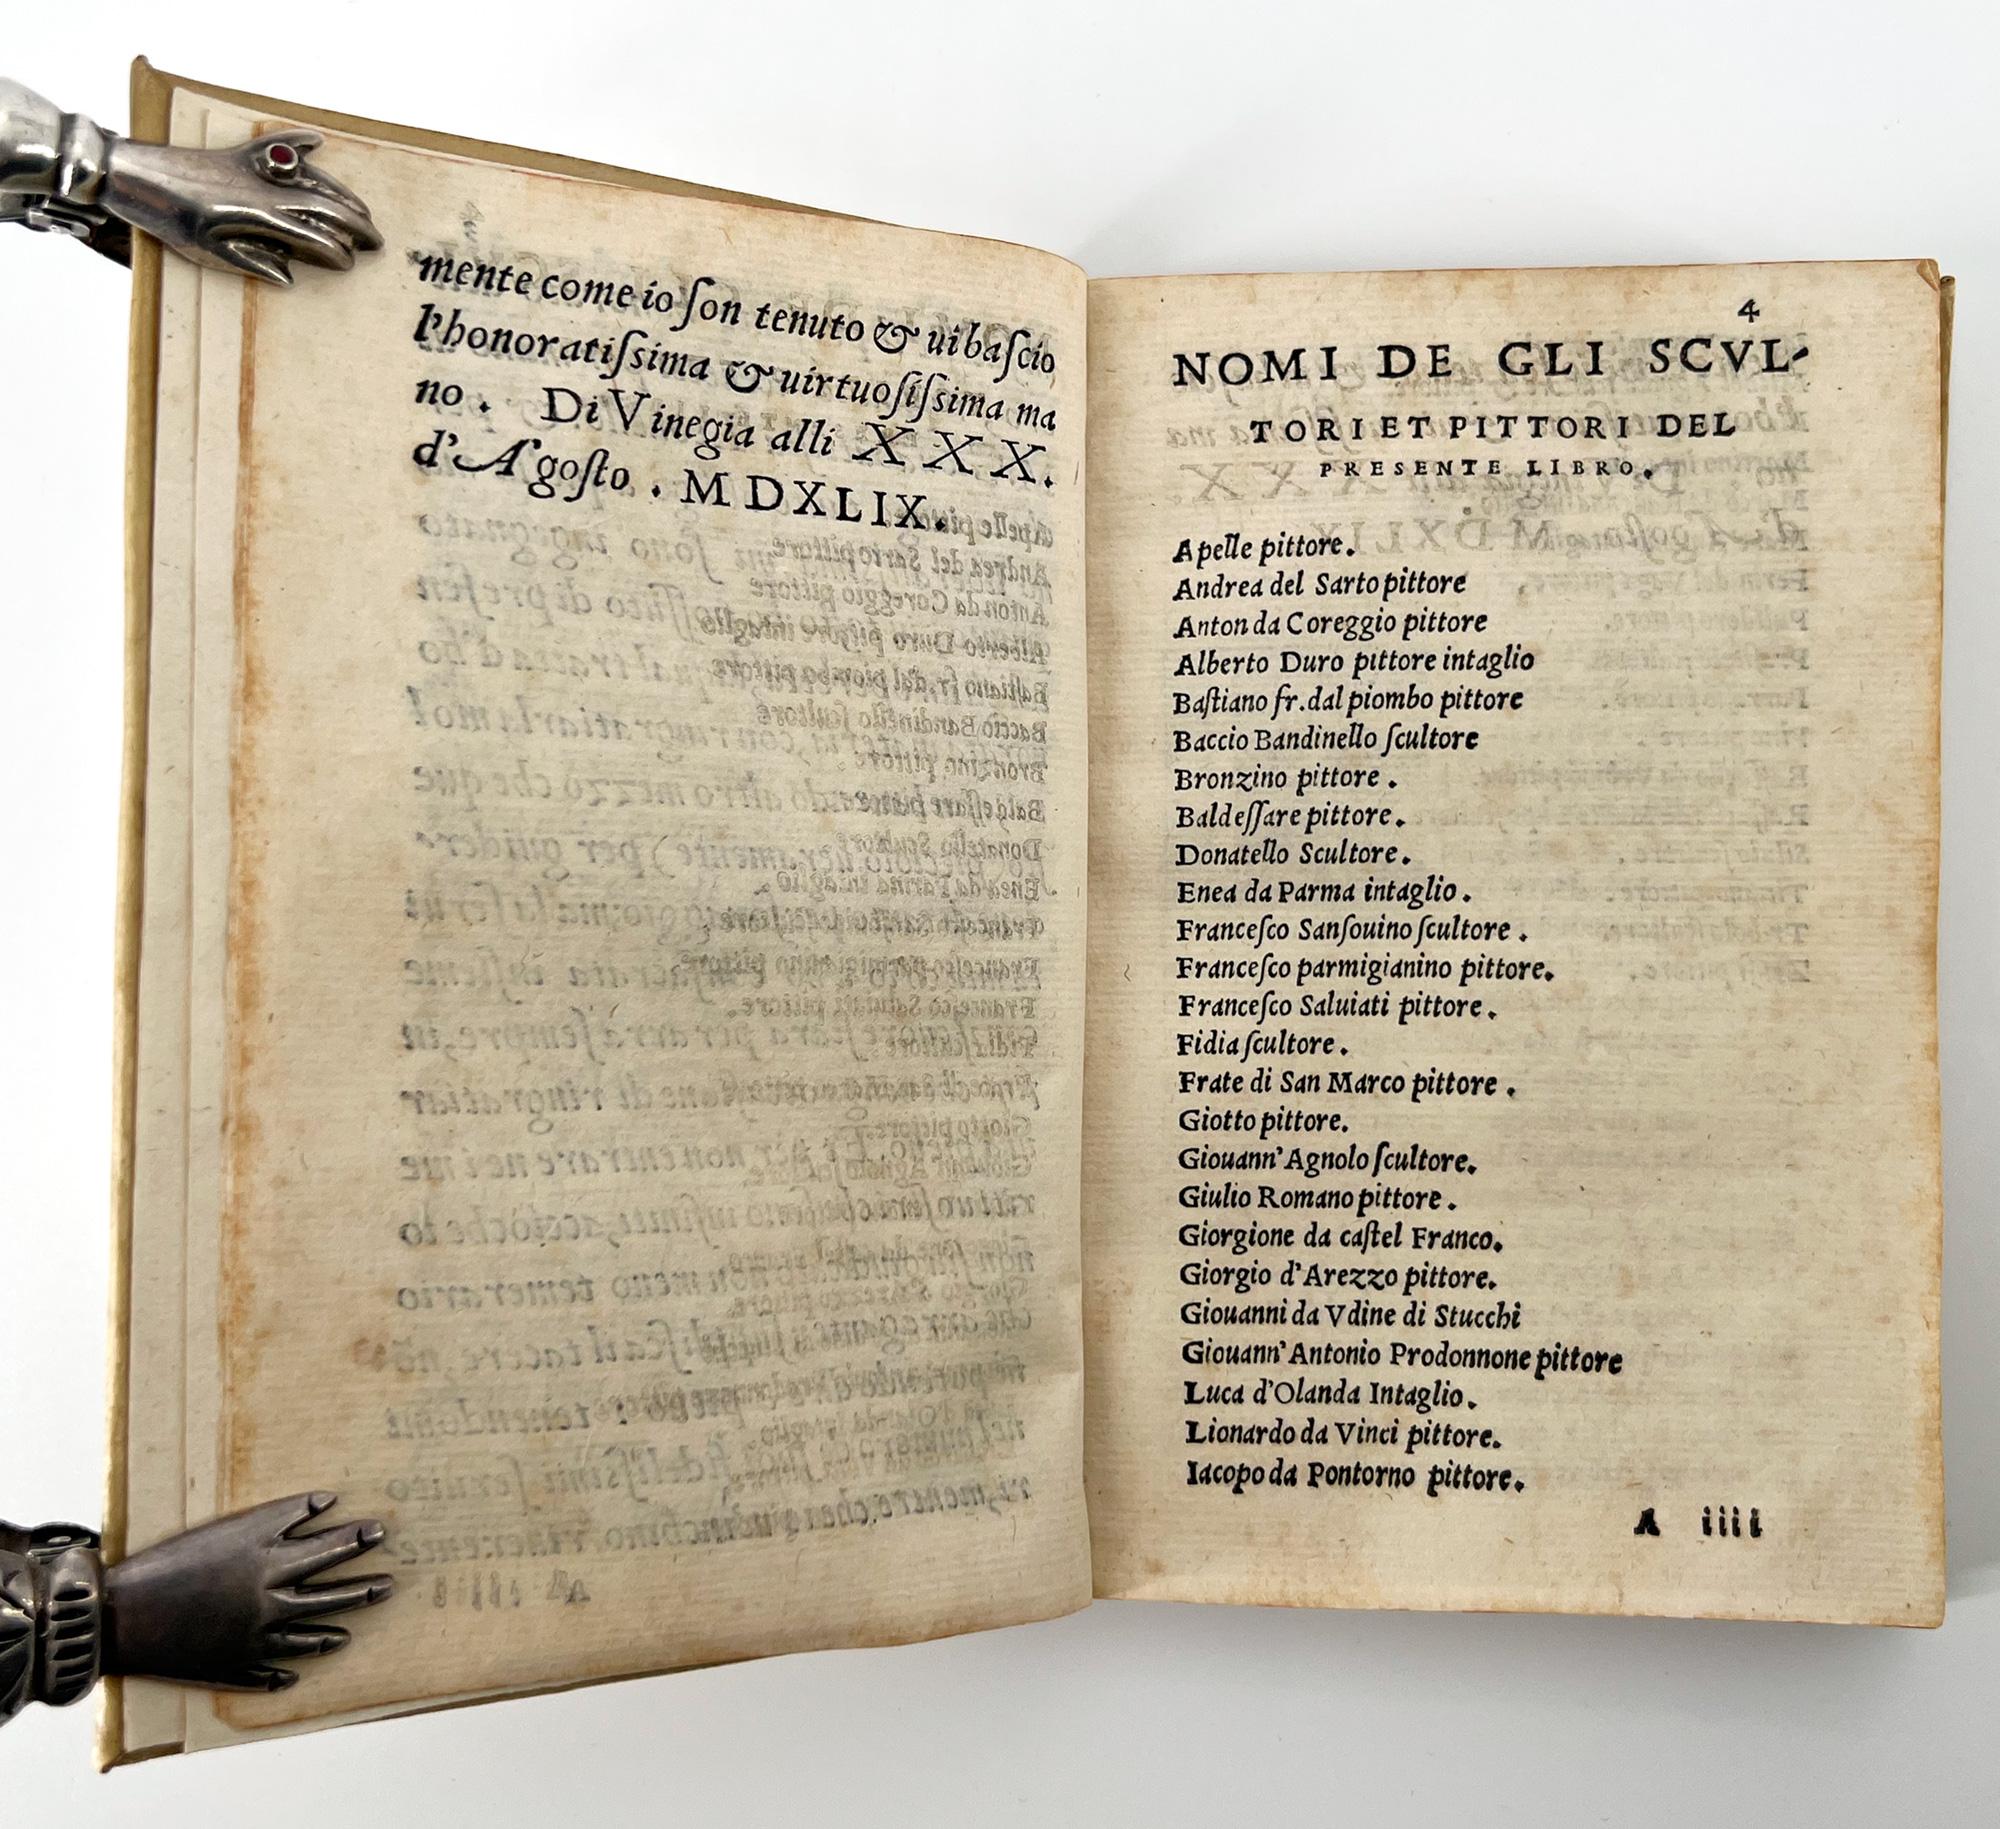 mente come io ſon tenuto & uibaſcio
l'honoratiſsima & uirtuoſiſsima ma
no. Di Vinegia alli XXX.
d'Agoſto. MDXLIX.
4
NOMI DE GLI SCVL-
TORI ET PITTORI DEL
PRESENTE LIBRO.
Apelle pittore.
Andrea del Sarto pittore
Anton da Coreggio pittore
Alberto Duro pittore intaglio
Baſtiano fr. dal piombo pittore
Baccio Bandinello ſcultore
Bronzino pittore.
Baldeſſare pittore.
Donatello Scultore.
Enea da Parma intaglio.
Franceſco Sanſouino ſcultore.
Franceſco parmigianino pittore.
Franceſco Saluiati pittore.
Fidia ſcultore.
Frate di San Marco pittore.
Giotto pittore.
Giouann' Agnolo ſcultore.
Giulio Romano pittore.
Giorgione da caſtel Franco.
Giorgio d'Arezzo pittore.
Giouanni da Vdine di Stucchi
Giouann' Antonio Prodonnone pittore
Luca d'Olanda Intaglio.
Lionardo da Vinci pittore.
Iacopo da Pontorno pittore.
A iiii